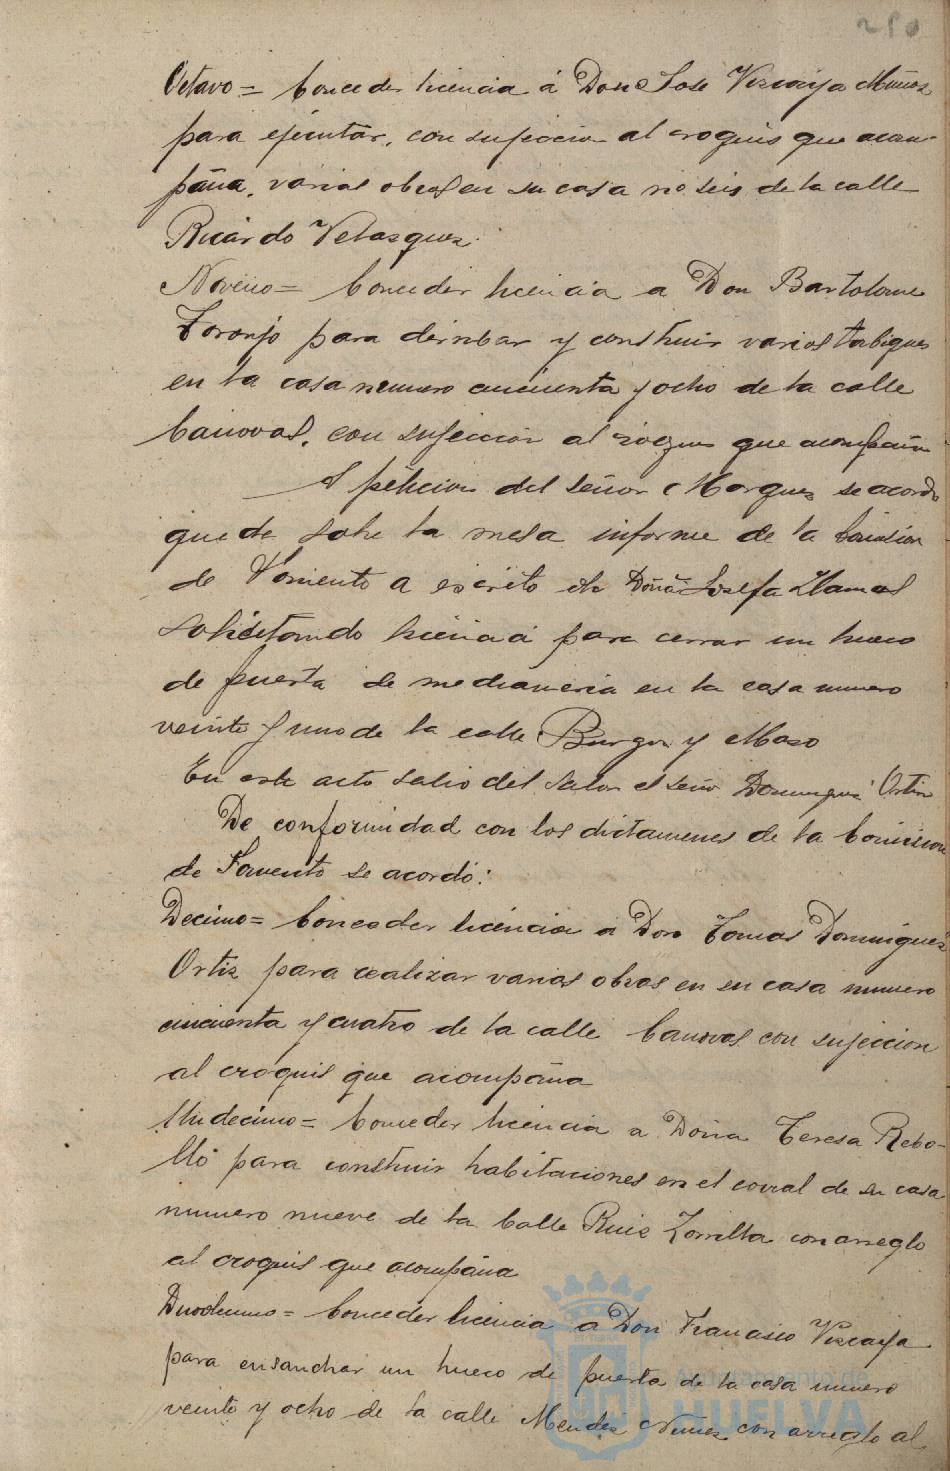 210
Octavo = Conceder licencia á Don Jose Vizcaya Muñoz
para ejecutar, con sujeccion al croquis que acom-
paña, varias obras en su casa nº seis de la calle
Ricardo Velazquez.
Noveno = Conceder licencia a Don Bartolome
Toronjo para derribar y construir varios tabiques
en la casa numero cincuenta y ocho de la calle
Canovas, con sujeccion al croquis que acompaña
A peticion del señor Marquez se acordó
quede sobre la mesa informe de la Comision
de Fomento a escrito de Doña Josefa Llamas
solicitando licencia para cerrar un hueco
de puerta de medianeria en la casa numero
veinte y uno de la calle Burgos y Mazo
En este acto salio del salon el señor Dominguez Ortiz
De conformidad con los dictamenes de la Comision
de Fomento se acordó:
Decimo = Conceder licencia a Don Tomas Dominguez
Ortiz para realizar varias obras en su casa numero
cincuenta y cuatro de la calle Canovas con sujeccion
al croquis que acompaña
Undecimo = Conceder licencia a Doña Teresa Rebo-
llo para construir habitaciones en el corral de su casa
numero nueve de la Calle Ruiz Zorrilla con arreglo
al croquis que acompaña
Duodecimo = Conceder licencia a Don Francisco Vizcaya
para ensanchar un hueco de puerta de la casa numero
veinte y ocho de la calle Mendez Nuñez con arreglo al
Ayuntamiento de
HUELVA